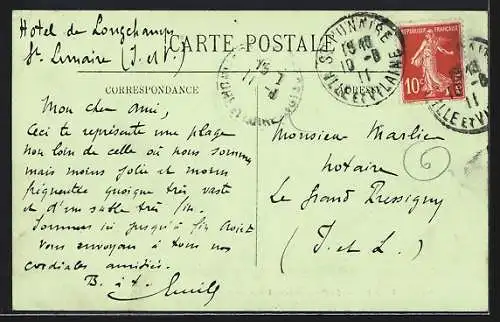 Hotel de Longchamp
St Lunaire (I. et V.)
CARTE POSTALE
CORRESPONDANCE
ADRESSE
ST LUNAIRE
19 10
10 -8
11
ILLE ET VILAINE
RÉPUBLIQUE FRANÇAISE
POSTES
10c
ILLE ET VILAINE
Mon cher ami,
Ceci te représente une plage
non loin de celle où nous sommes
mais moins jolie et moins
fréquentée quoique très vaste
et d'un sable très fin.
Sommes ici jusqu'à fin Août
Vous envoyons à tous nos
cordiales amitiés.
B. à t.
Emile
Monsieur Marlin
notaire
Le Grand Pressigny
(I. et L.)
6